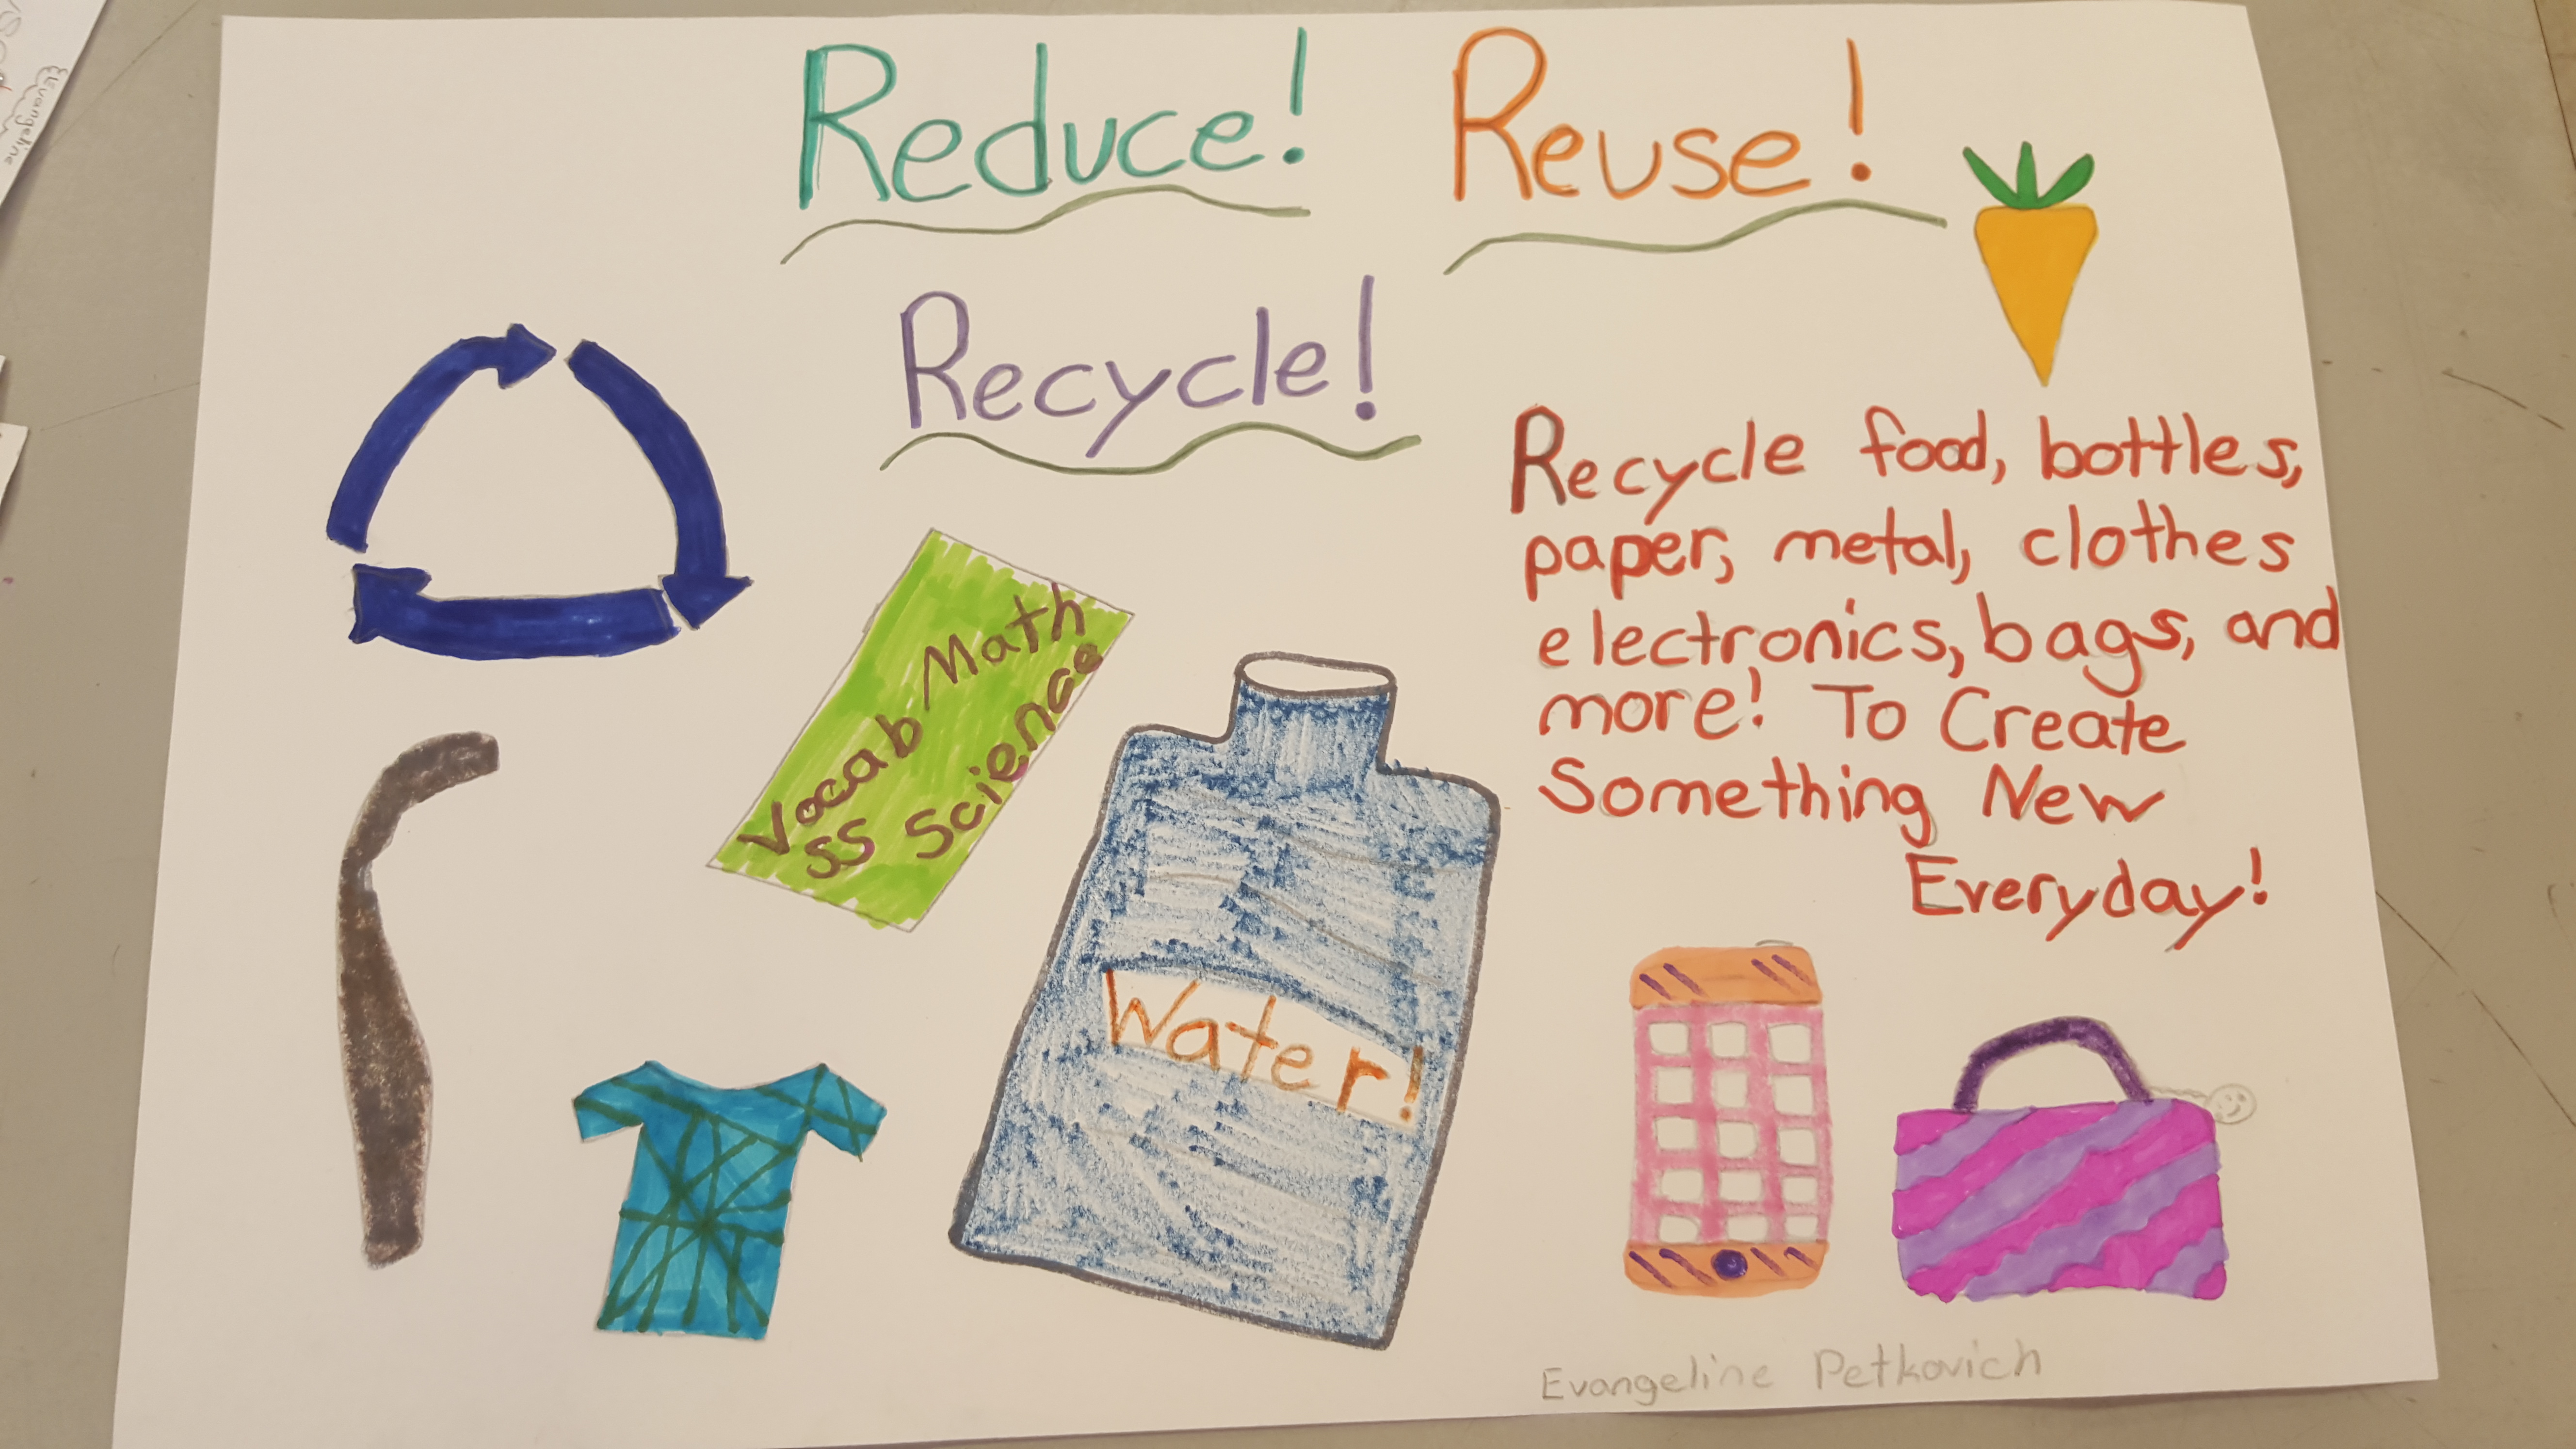 Reduce! Reuse!
Recycle!
Recycle food, bottles,
paper, metal, clothes
electronics, bags, and
more! To Create
Something New
Everyday!
Vocab Math
SS Science
Water!
Evangeline Petkovich
Evangeline